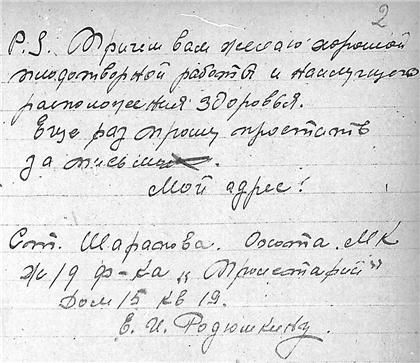 2
P.S. Причем вам желаю хорошой
плодотворной работы и наилучшего
расположения здоровья.
Еще раз прошу простить
за письмо.
Мой адрес:
Ст. Шарапова. Охота. МК
ж/д ф-ка „Пролетарий"
Дом 15 кв 19.
Е. И. Родюшкину